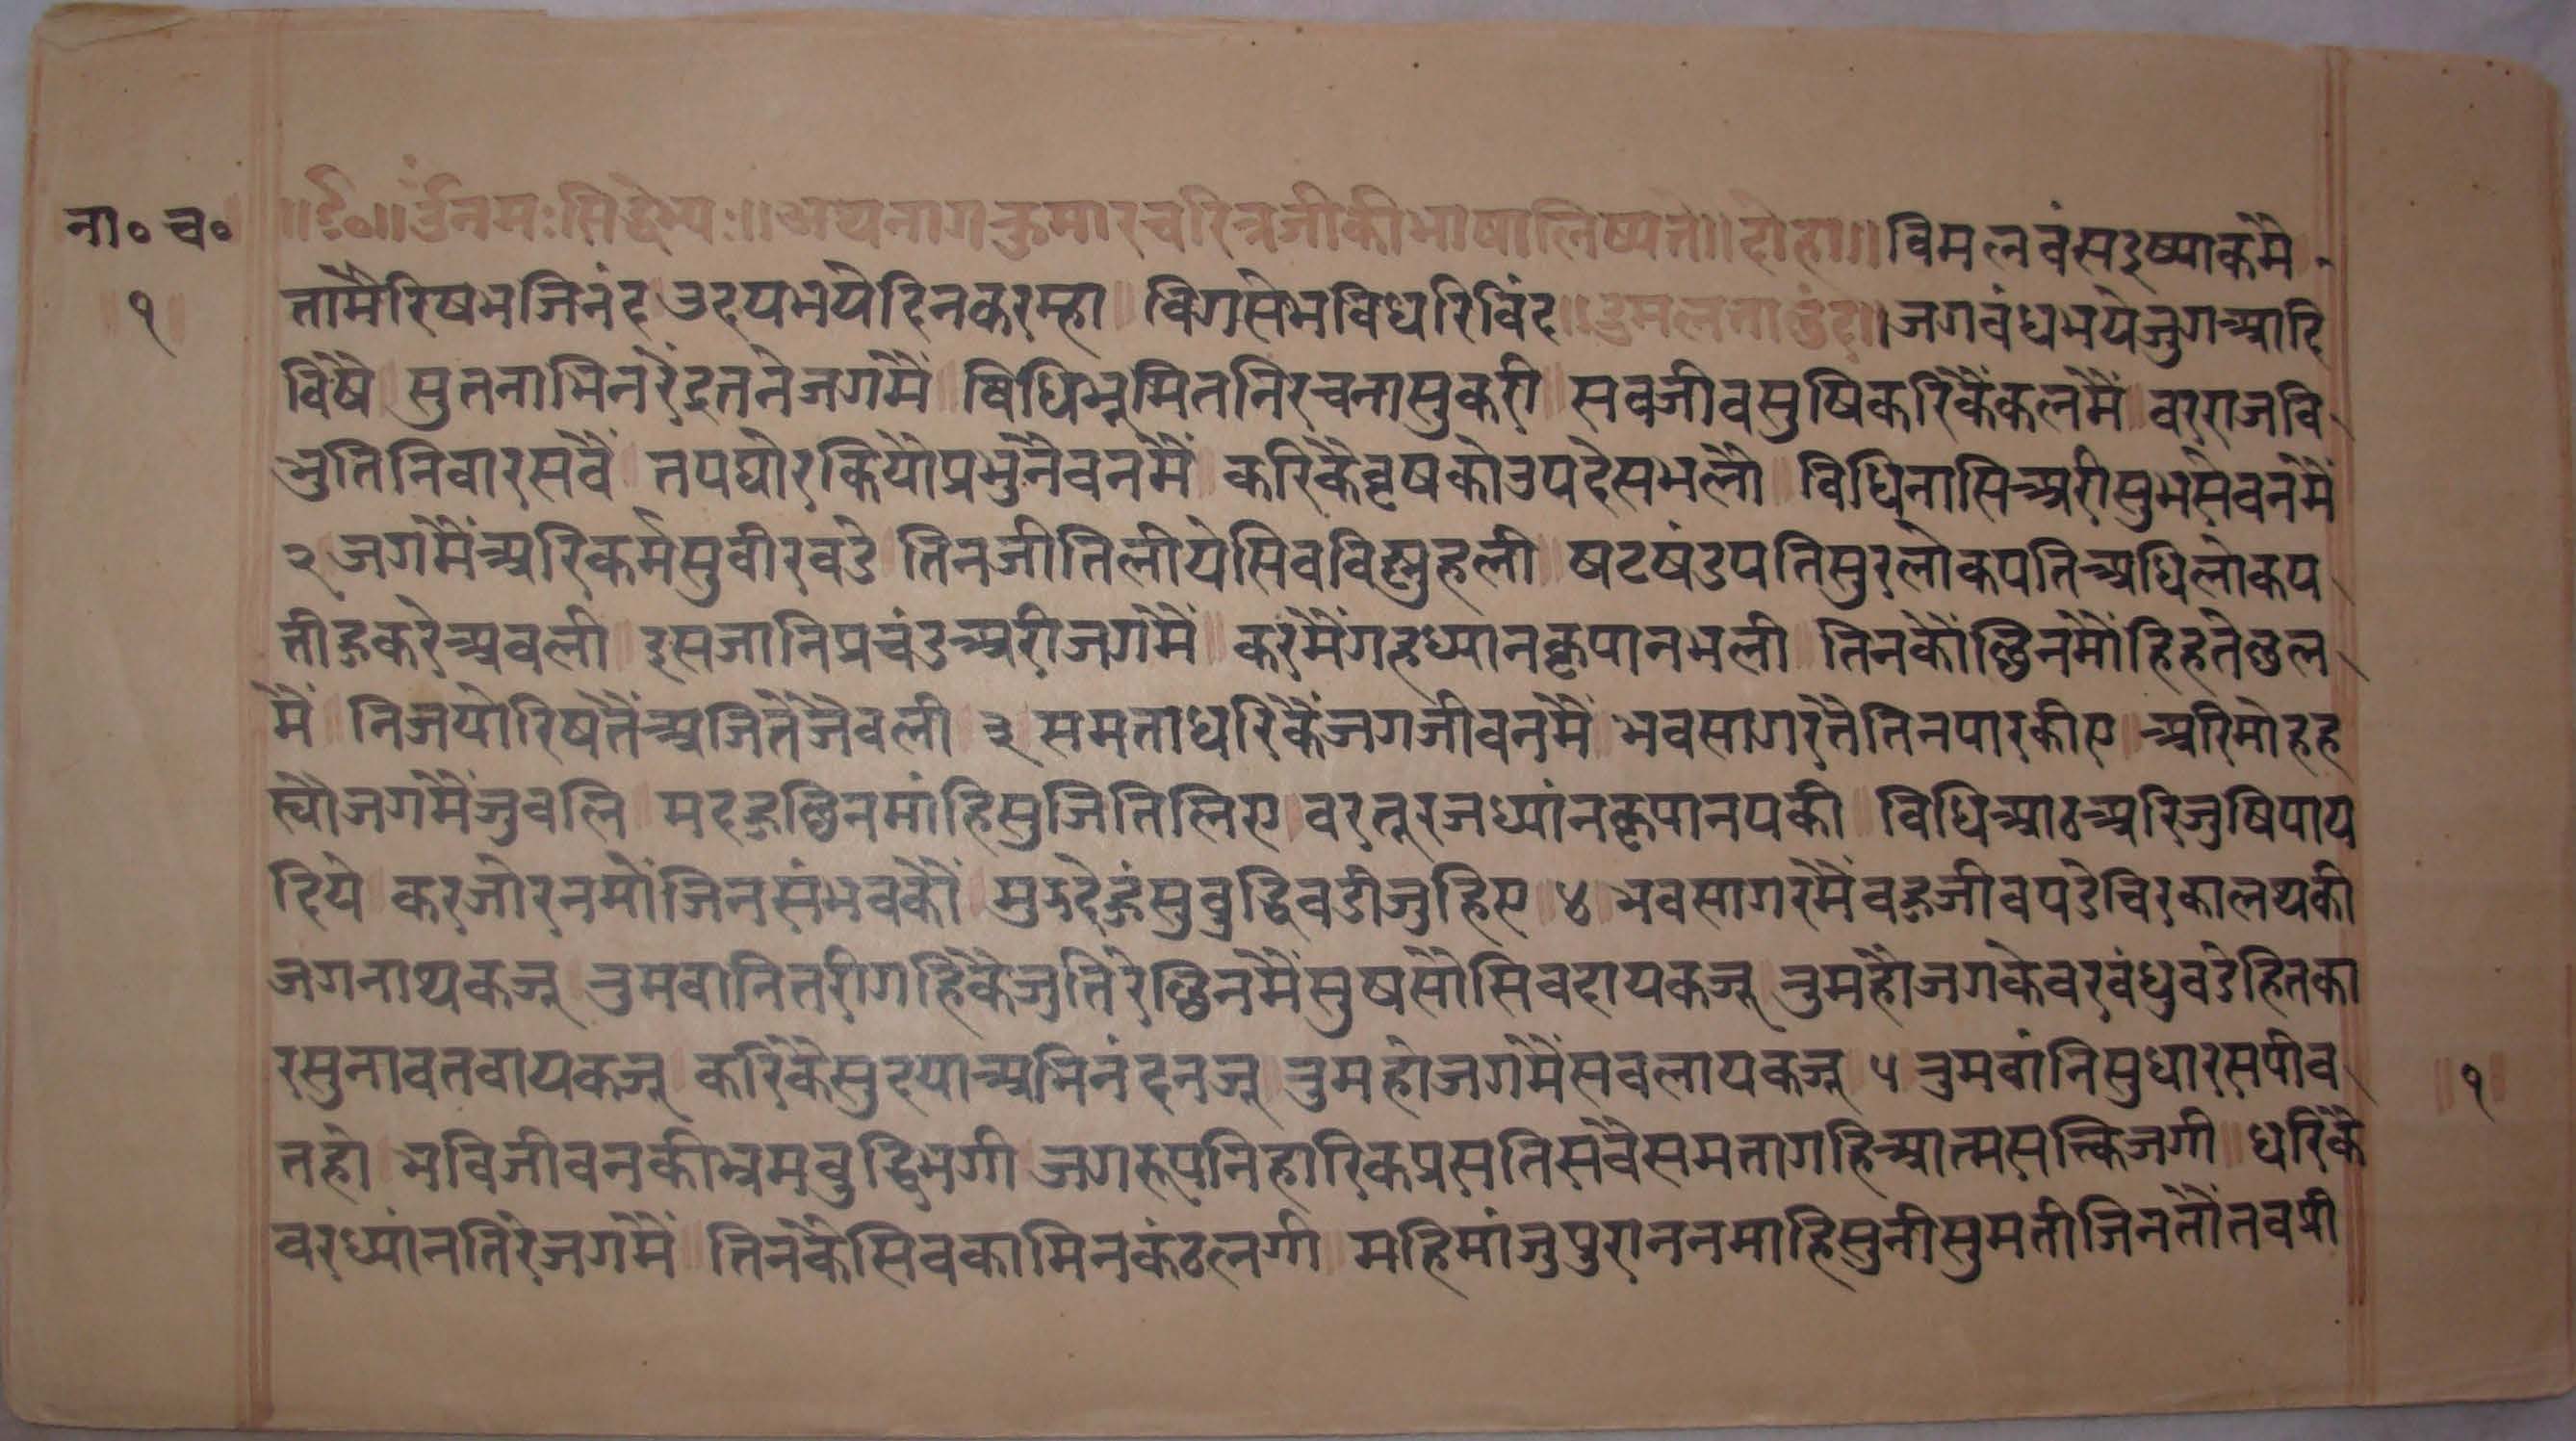 ना॰ च॰ ॥र्द॰॥ र्उनमःसिद्धेभ्यः॥ अथनागकुमारचरित्रजीकीभाषालिष्यते॥ दोहा॥ विमलवंसइष्याकमै
१ तामैरिषभजिनंद उदयभयेदिनकरम्हा विगसेभविधरिविंद ॥दुमलताछंद॥ जगबंधभयेजुगआदि
विषै सुतनाभिनरेंद्रतनेजगमैं विधिभूमितनिरचनासुकरी सवजीवसुषिकरिकैंकलमैं वरराजवि
भुतिनिवारसवैं तपघोरकियौप्रभुनैवनमैं करिकैवृषकोउपदेसभलौ विधिनासिअरीसुभसेवनमैं
२ जगमैंअरिकर्मसुवीरवडे तिनजीतिलीयेसिवविस्नुहली षटषंडपतिसुरलोकपतिअधिलोकप
तीहुकरेअवली इसजानिप्रचंडअरीजगमैं करमैंगह्रध्यानकृपानभली तिनकौंछिनमौंहिहतेछल
मैं निजपोरिषतैंअजितेजैवली ३ समताधरिकैंजगजीवनमैं भवसागरतैतिनपारकीए अरिमोहह
त्यौजगमैंजुवलि महहुछिनमांहिसुजितिलिए वरतूरजध्यांनकृपानपकी विधिआठअरिजुषिपाय
दिये करजोरनमौंजिनसंभवकौं मुझदेहुंसुवुद्धिवडीजुहिए ४ भवसागरमैंवहुजीवपडेचिरकालथकी
जगनाथकजू तुमवानितरीगहिकैजुतिरेछिनमैंसुषसौंसिवदायकजू तुमहौजगकेवरवंधुवडेहितका
रसुनावतवायकजू करिकैसुदयाअभिनंदनजू तुमहोजगमैंसवलायकजू ५ तुमवांनिसुधारसपीव १
तहो भविजीवनकीभ्रमवुद्धिभगी जगरूपनिहारिकप्रसतिसवैसमतागहिआत्मसक्तिजगी धरिकै
वरध्यांनतिरेजगमैं तिनकेसिवकामिनकंठलगी महिमांजुपुराननमाहिसुनीसुमतीजिनतौतवप्री